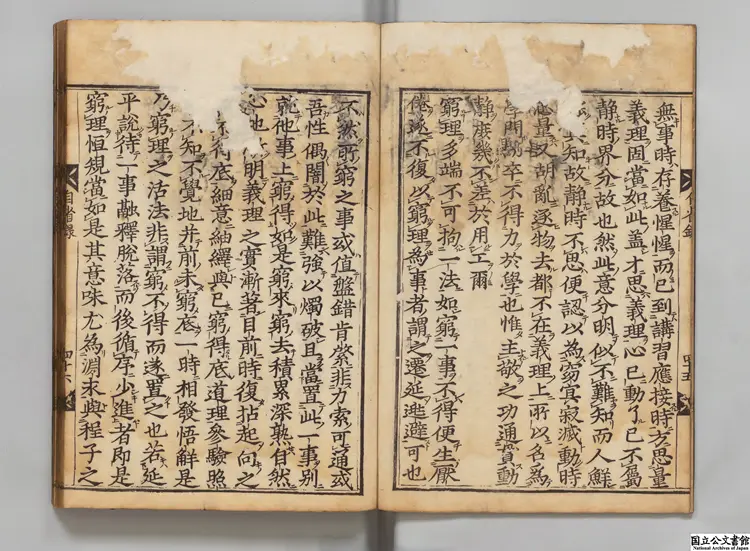 無事時存養惺惺而已到講習應接時方思量
義理固當如此盖才思義理心已動了已不屬
静時界分故也然此意分明似不難知而人鮮
知故静時不思便認以為窈冥寂滅動時
量又胡亂逐物去都不在義理上所以名為
學問卒不得力於學也惟主敬之功通貫動
静庶幾不差於用工爾
窮理多端不可拘一法如窮一事不得便生厭
倦遂不復以窮理為事者謂之遷延逃避可也
四十五
不然所窮之事或值盤錯肯綮非力索可通或
吾性偶闇於此難強以燭破且當置此一事別
就他事上窮得如是窮來窮去積累深熟自然
心也明義理之實漸著目前時復拈起向之
不得底細意紬繹與已窮得底道理參驗照
不知不覺地并前未窮底一時相發悟解是
乃窮理之活法非謂窮不得而遂置之也若延
平說待一事融釋脫落而後循序少進者即是
窮理恒規當如是其意味尤為淵永與程子之
自省錄
四十六
国立公文書館
National Archives of Japan